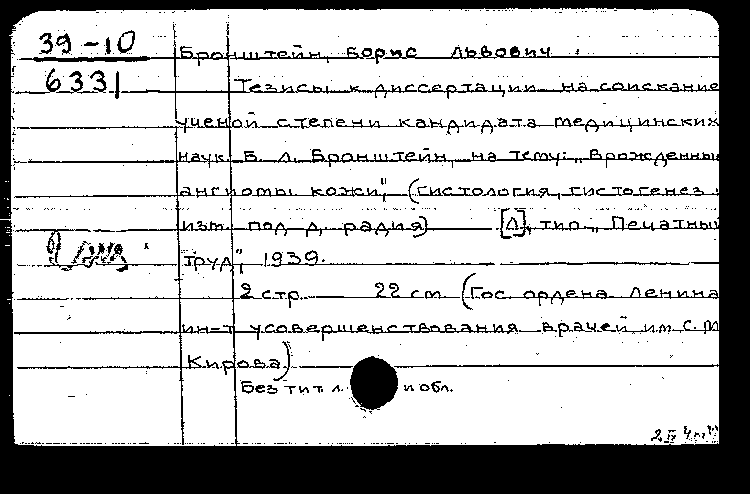 39-10
6331
Бронштейн, Борис Львович.
Тезисы к диссертации на соискание
ученой степени кандидата медицинских
наук Б. Л. Бронштейн, на тему: „Врожденны
ангиомы кожи", (Гистология, гистогенез
изм. под д. радия) [Л], тип. „Печатный
труд", 1939.
2 стр. 22 см. (Гос. ордена Ленина
ин-т усовершенствования врачей им С. М
Кирова)
Без тит. л. и обл.